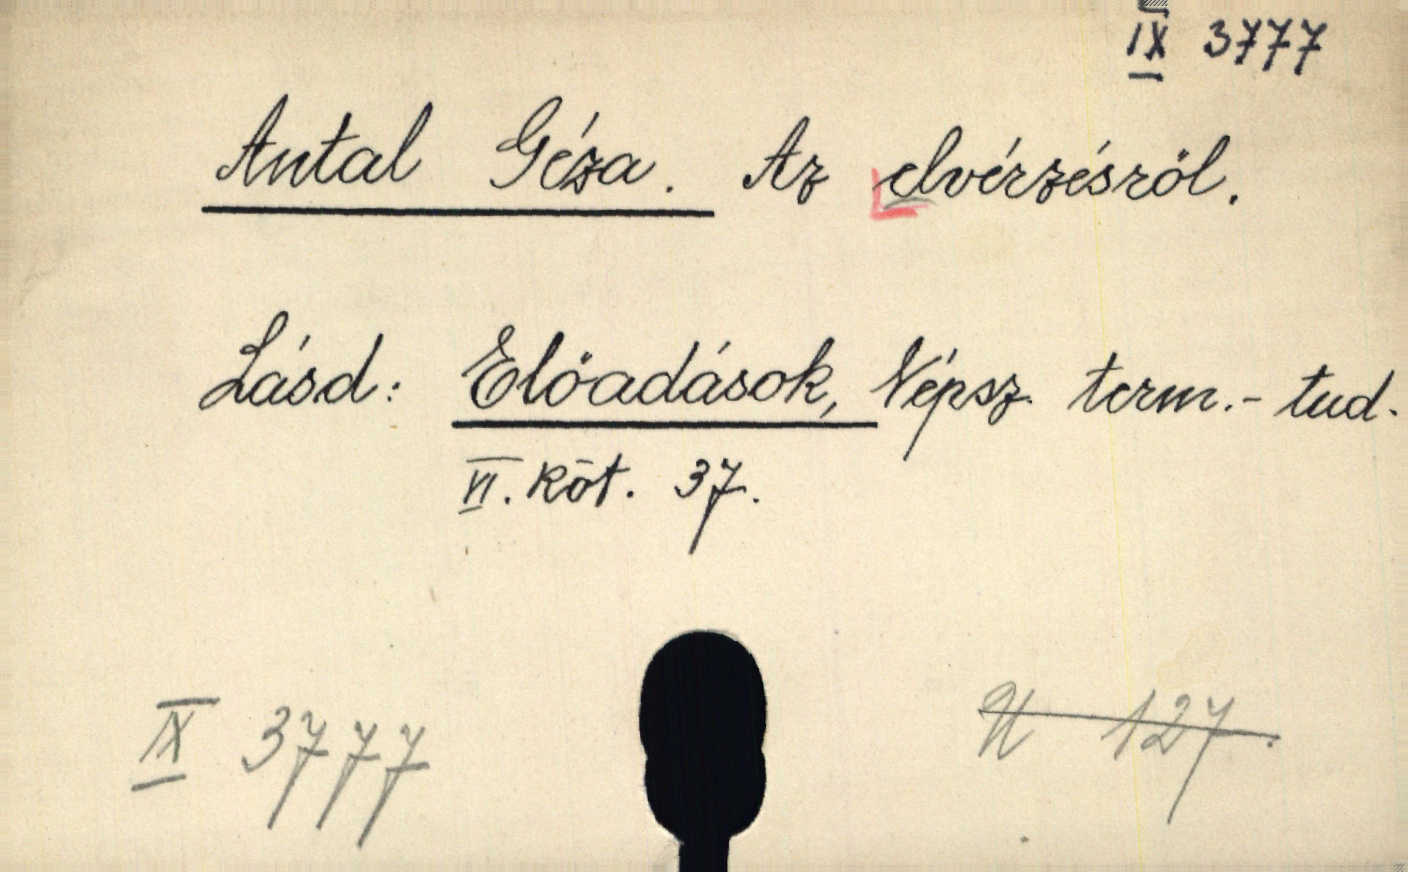 IX 3777
Antal Géza. Az elvérzésről.
Lásd: Előadások, Népsz. term.-tud.
VI. köt. 37.
IX 3777
U 127.